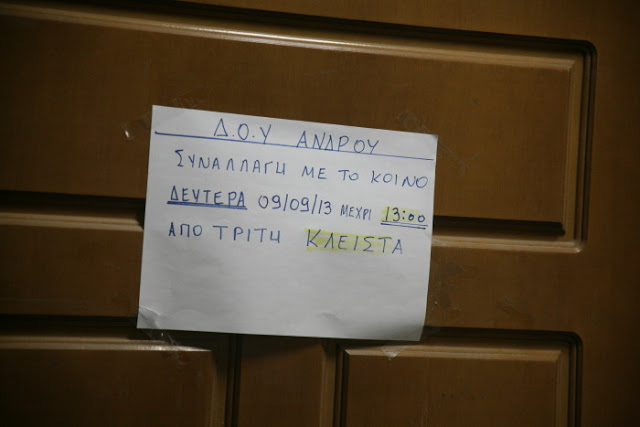 Δ.Ο.Υ ΑΝΔΡΟΥ
ΣΥΝΑΛΛΑΓΗ ΜΕ ΤΟ ΚΟΙΝΟ
ΔΕΥΤΕΡΑ 09/09/13 ΜΕΧΡΙ 13:00
ΑΠΟ ΤΡΙΤΗ ΚΛΕΙΣΤΑ